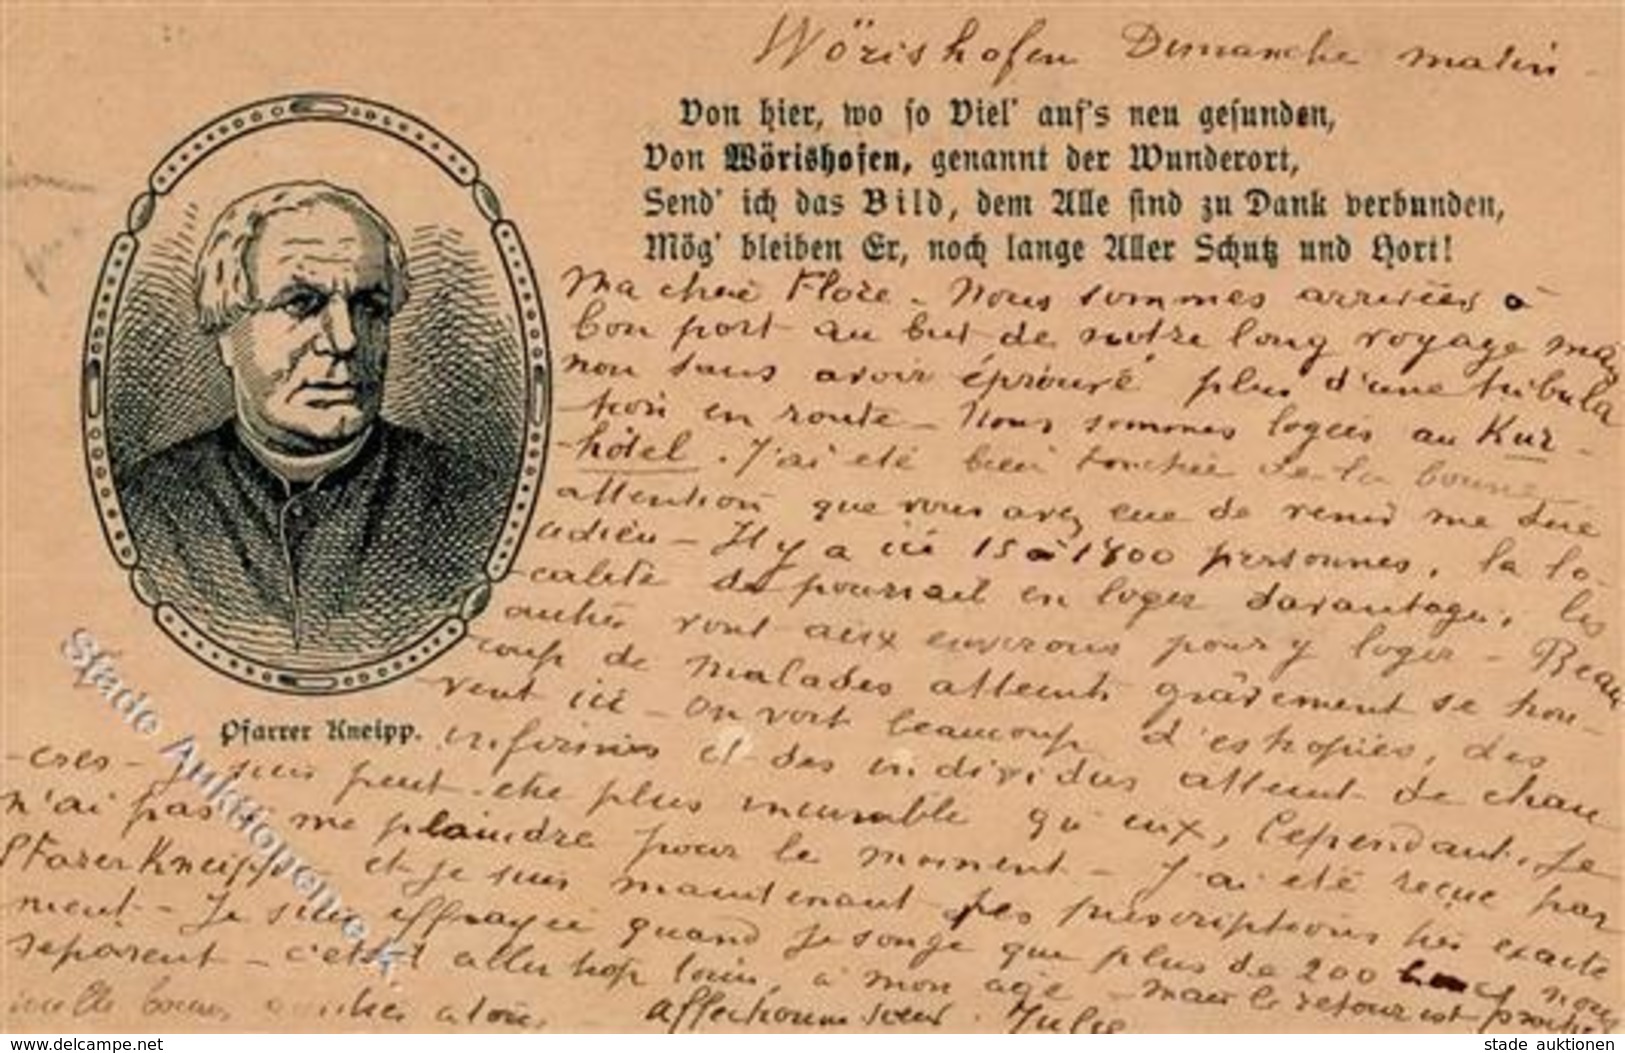 Wörishofen Dimanche matin
Von hier, wo so Viel' auf's neu gesunden,
Von Wörishofen, genannt der Wunderort,
Send' ich das Bild, dem Alle sind zu Dank verbunden,
Mög' bleiben Er, noch lange Aller Schutz und Hort!
Ma chère Flore. Nous sommes arrivées à
bon port au but de notre long voyage mais
non sans avoir éprouvé plus d'une tribula
tion en route – Nous sommes logées au Kur-
hôtel. J'ai été bien touchée de la bonne
attention que vous avez eue de venir me dire
adieu – Il y a ici 15 à 1800 personnes, la lo-
calité ne pourrait en loger davantage, les
autres vont aux environs pour y loger – Beau
coup de malades atteints gravement se trou-
vent ici – On voit beaucoup d'estropiés, des
Pfarrer Kneipp.
infirmes et des individus atteints de chan
-cres – Je suis peut-etre plus incurable qu'eux, Cependant Je
n'ai pas à me plaindre pour le moment – J'ai été reçue par
Pfarer Kneipp et je suis maintenant ses prescriptions très exacte
ment – Je suis effrayée quand je songe que plus de 200 lieues nous
séparent – c'était aller trop loin, à mon age – mais le retour est proche
mille bonnes amitiés à tous – affectionnée soeur. Julie
Stade Auktionen
the-best-of-ebay.com
stade auktionen